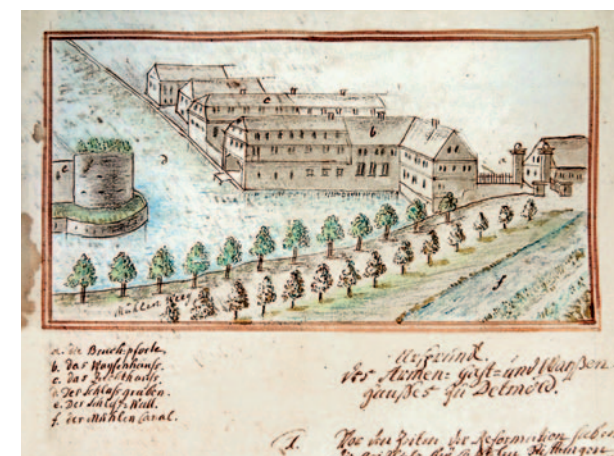 c
b
e
f
Mühlen Weg
a. die Bruchpforte.
b. das Waysenhauß.
c. das Zuchthauß.
d. Der Schloßgraben.
e. Der Schloß Wall.
f. der Mühlen Canal.
Urgrund
des Armen- Gast- und Waysen
Haußes zu Detmold.
1. Vor den Zeiten der Reformation haben